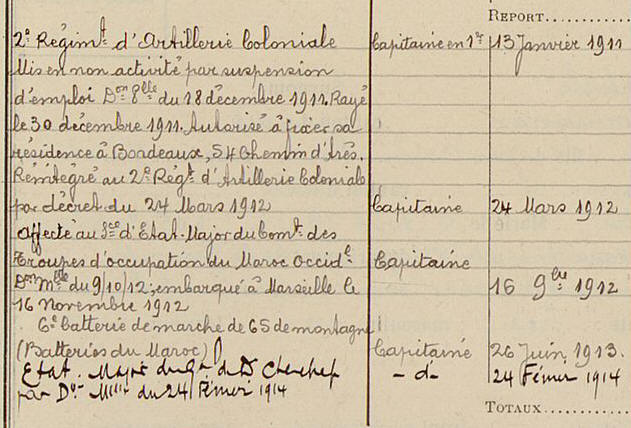 REPORT
2e Régimt d'Artillerie Coloniale Capitaine en 1er 13 Janvier 1911
Mis en non activité par suspension
d'emploi Don Plle du 18 décembre 1911. Rayé
le 30 décembre 1911. Autorisé à fixer sa
résidence à Bordeaux, 54 Chemin d'Arès.
Réintégré au 2e Régt d'Artillerie Coloniale
par décret du 24 Mars 1912 Capitaine 24 Mars 1912
Affecté au Sce d'Etat-Major du Comt des
Troupes d'occupation du Maroc Occidl Capitaine
Don Mlle du 9/10/12; embarqué à Marseille le 16 9bre 1912
16 Novembre 1912
6e batterie de marche de 65 de montagne
(Batteries du Maroc) Capitaine 26 Juin 1913.
Etat. Major du de - d - 24 Février 1914
par Don Mlle du 24 Février 1914
TOTAUX